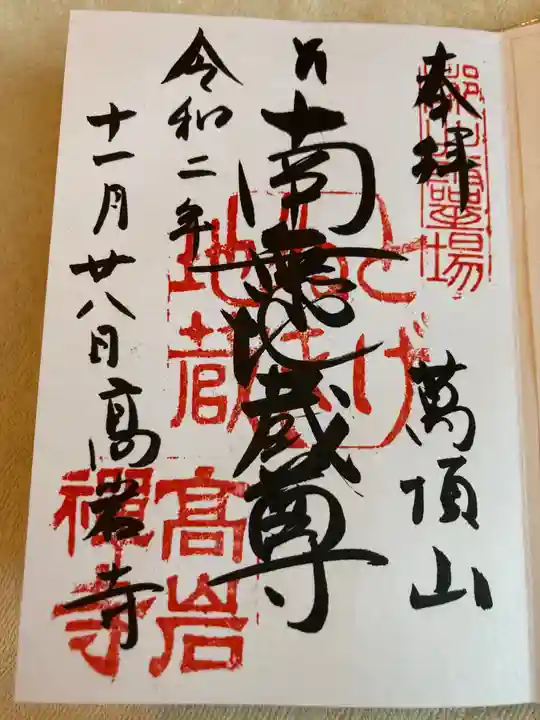 奉拝
萬頂山
南無地蔵尊
とげぬき
地蔵
高岩
禅寺
令和二年
十一月廿八日
高岩寺